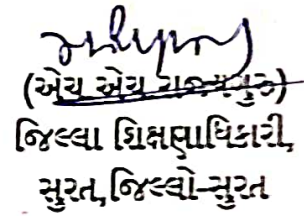 (એચ એચ રાજ્યગુરુ)
જિલ્લા શિક્ષણાધિકારી,
સુરત, જિલ્લો-સુરત